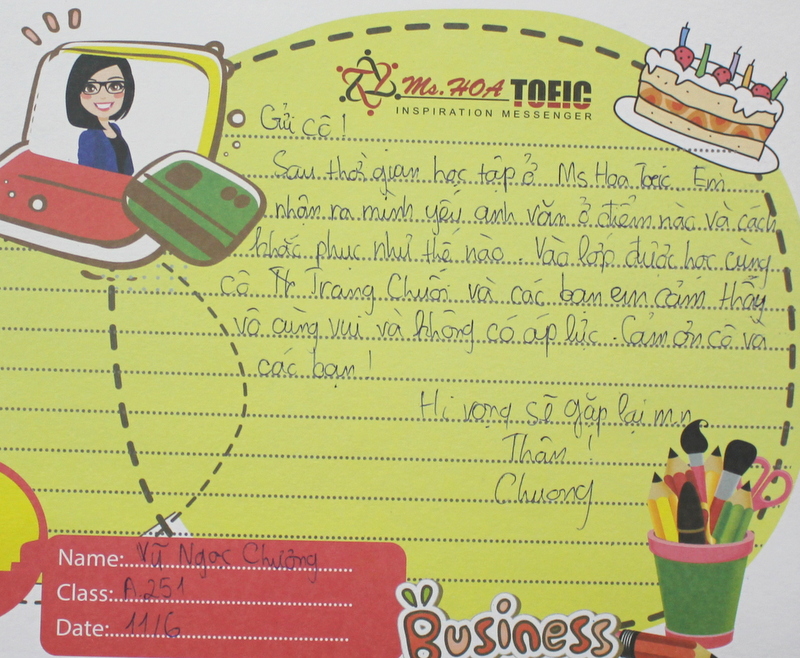 Ms. HOA TOEIC
INSPIRATION MESSENGER
Gửi cô !
Sau thời gian học tập ở Ms Hoa Toeic. Em
nhận ra mình yếu anh văn ở điểm nào và cách
khắc phục như thế nào. Vào lớp được học cùng
cô Tr Trang Chuối và các bạn em cảm thấy
vô cùng vui và không có áp lực. Cảm ơn cô và
các bạn !
Hi vọng sẽ gặp lại m.n
Thân !
Chương
Name: Vũ Ngọc Chương
Class: A 251
Date: 11/6
Business